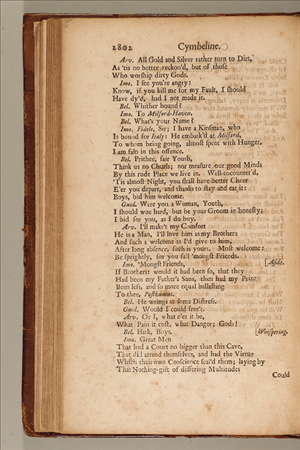 2802 Cymbeline.
Arv. All Gold and Silver rather turn to Dirt,
As 'tis no better reckon'd, but of those
Who worship dirty Gods.
Imo. I see you're angry:
Know, if you kill me for my Fault, I should
Have dy'd, had I not made it.
Bel. Whither bound?
Imo. To Milford-Haven.
Bel. What's your Name?
Imo. Fidele, Sir; I have a Kinsman, who
Is bound for Italy: He embark'd at Milford,
To whom being going, almost spent with Hunger,
I am faln in this offence.
Bel. Prithee, fair Youth,
Think us no Churls; nor measure our good Minds
By this rude Place we live in. Well-encounter'd,
'Tis almost Night, you shall have better Chear
E'er you depart, and thanks to stay and eat it:
Boys, bid him welcome.
Guid. Were you a Woman, Youth,
I should woe hard, but be your Groom in honesty;
I bid for you, as I do buy.
Arv. I'll make't my Comfort
He is a Man, I'll love him as my Brother:
And such a welcome as I'd give to him,
After long absence, such is yours. Most welcome:
Be sprightly, for you fall 'mongst Friends.
Imo. 'Mongst Friends, [Aside.
If Brothers: would it had been so, that they
Had been my Father's Sons, then had my Prize
Been less, and so more equal ballasting
To thee, Posthumus.
Bel. He wrings at some Distress.
Guid. Would I could free't.
Arv. Or I, what e'er it be,
What Pain it cost, what Danger; Gods!
Bel. Hark, Boys. [Whispering.
Imo. Great Men
That had a Court no bigger than this Cave,
That did attend themselves, and had the Virtue
Which their own Conscience seal'd them; laying by
That Nothing-gift of differing Multitudes
Could